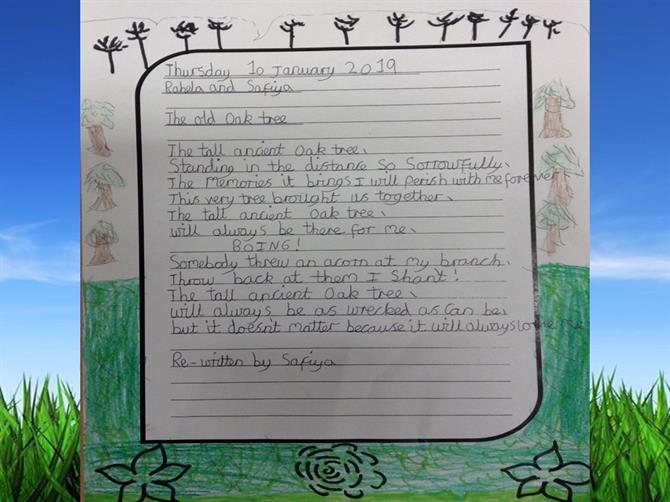 Thursday 10 January 2019
Rahela and Safiya
The old Oak tree
The tall ancient Oak tree,
Standing in the distance so sorrowfully,
The memories it brings I will perish with me forever
This very tree brought us together,
The tall ancient Oak tree,
will always be there for me,
BOING!
Somebody threw an acorn at my branch,
Throw back at them I shant!
The tall ancient Oak tree,
will always be as wrecked as can be,
but it doesn't matter because it will always be me
Re-written by Safiya